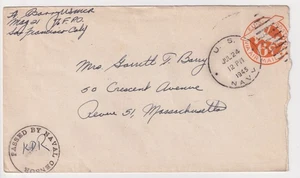 Mag 21 % F.P.O.
San Francisco Calif
Mrs. Garrett F. Barry
50 Crescent Avenue
Revere 51, Massachusetts
U. S.
JUL 24
12 PM
1945
NAVY
PASSED BY NAVAL CENSOR